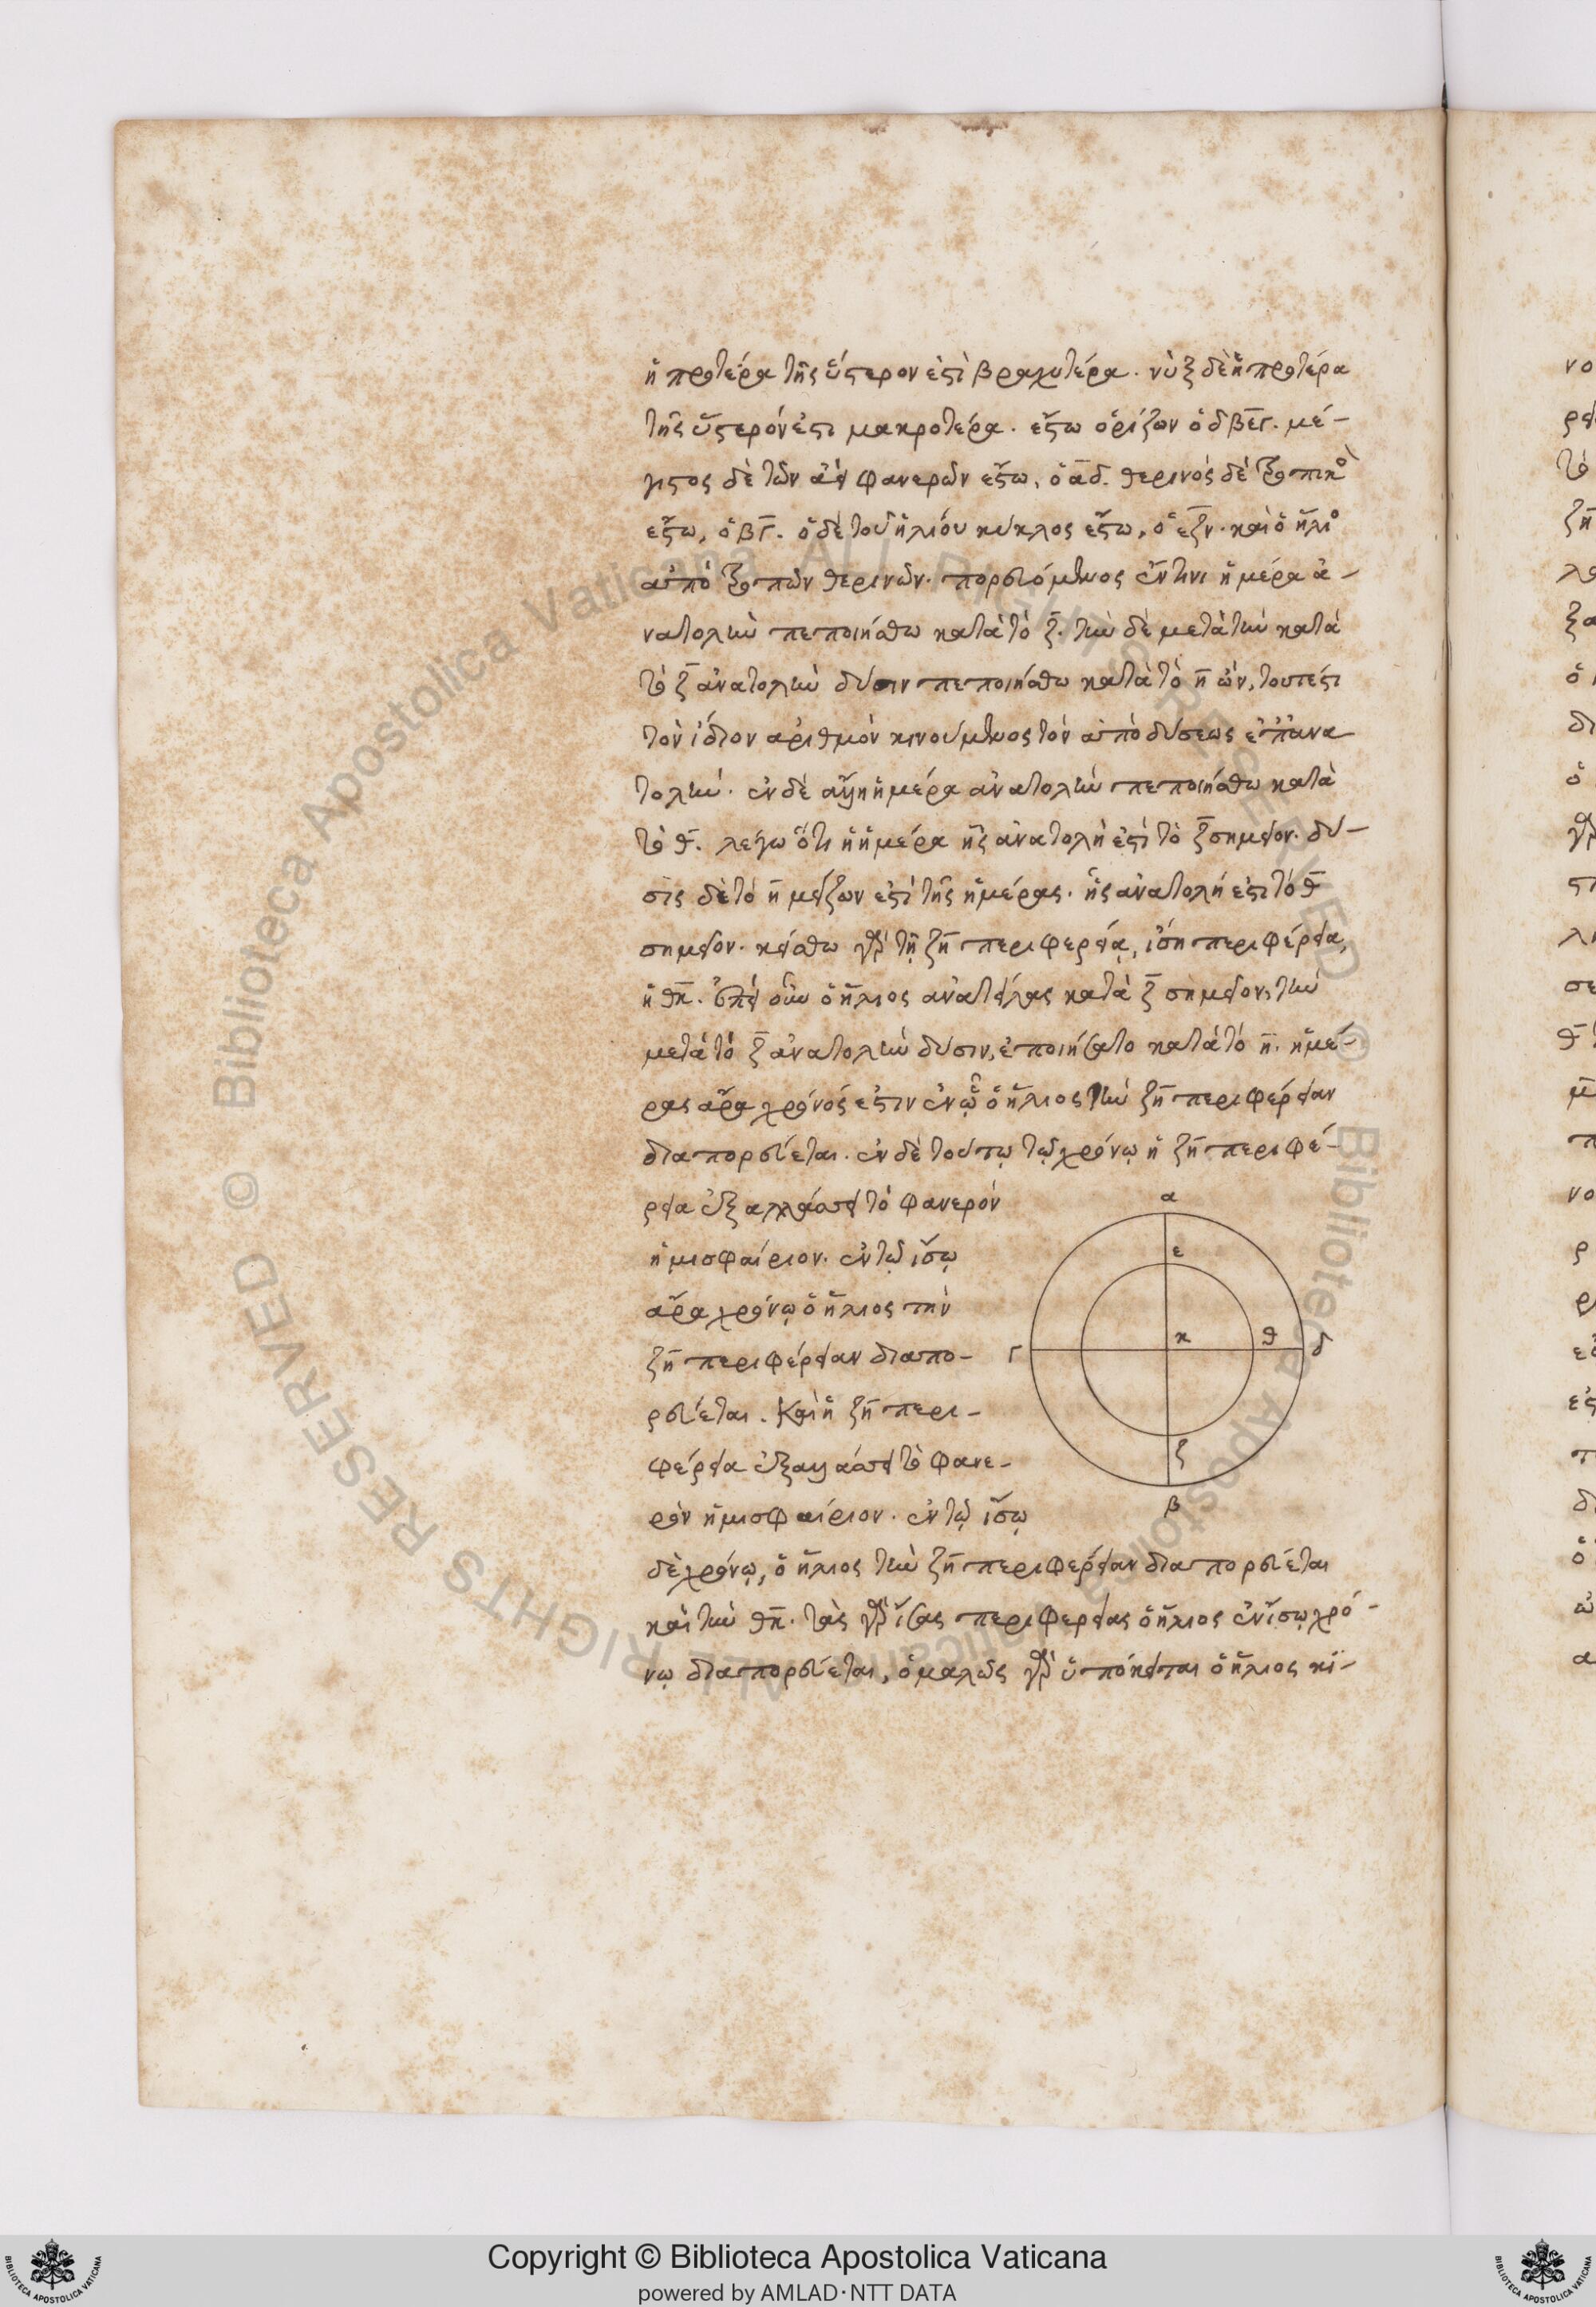 ἡ προτέρα τῆς ὕστερον ἐστὶ βραχυτέρα. νὺξ δὲ ἡ προτέρα
τῆς ὕστερόν ἐστι μακροτέρα. ἔστω ὁρίζων ὁ δβεγ. μέ-
γιστος δὲ τῶν ἀεὶ φανερῶν ἔστω, ὁ αδ. θερινὸς δὲ τροπικὸ
ἔστω, ὁ βγ. ὁ δὲ τοῦ ἡλίου κύκλος ἔστω, ὁ εζν. καὶ ὁ ἥλιο
ἀπὸ τροπῶν θερινῶν. πορευόμενος ἔν τινι ἡμέρα ἀ-
νατολὴν πεποιήσθω κατὰ τὸ ζ. τὴν δὲ μετὰ τὴν κατὰ
τὸ ζ ἀνατολὴν δύσιν πεποιήσθω κατὰ τὸ η ὢν, τουτέστι
τὸν ἴδιον ἀριθμὸν κινούμενος τὸν ἀπὸ δύσεως ἐπ' ἀνα
τολὴν. ἐν δὲ ἄλλη ἡμέρα ἀνατολὴν πεποιήσθω κατὰ
τὸ θ. λέγω ὅτι ἡ ἡμέρα ἧς ἀνατολὴ ἐστὶ τὸ ζ σημεῖον. δύ-
σις δὲ τὸ η μείζων ἐστὶ τῆς ἡμέρας. ἧς ἀνατολή ἐστι τὸ θ
σημεῖον. κείσθω γὰρ τῇ ζη περιφερείᾳ, ἴση περιφέρεια,
ἡ θκ. ἐπεὶ οὖν ὁ ἥλιος ἀνατείλας κατὰ ζ σημεῖον, τὴν
μετὰ τὸ ζ ἀνατολὴν δύσιν, ἐποιήσατο κατὰ τὸ η. ἡμέ-
ρας ἄρα χρόνός ἐστιν ἐν ᾧ ὁ ἥλιος τὴν ζη περιφέρειαν
διαπορεύεται. ἐν δὲ τούτῳ τῷ χρόνῳ ἡ ζη περιφέ-
ρεια ἐξαλλάσσει τὸ φανερὸν
ἡμισφαίριον. ἐν τῷ ἴσῳ
ἄρα χρόνῳ ὁ ἥλιος τὴν
ζη περιφέρειαν διαπο-
ρεύεται. Καὶ ἡ ζη περι-
φέρεια ἐξαλλάσσει τὸ φανε-
ρὸν ἡμισφαίριον. ἐν τῷ ἴσῳ
δὲ χρόνῳ, ὁ ἥλιος τὴν ζη περιφέρειαν διαπορεύεται
καὶ τὴν θκ. τὰς γὰρ ἴσας περιφερείας ὁ ἥλιος ἐν ἴσῳ χρό-
νῳ διαπορεύεται, ὁμαλῶς γὰρ ὑπόκειται ὁ ἥλιος κι-
α
ε
κ
θ
γ
δ
ζ
β
© Biblioteca Apostolica Vaticana ALL RIGHTS RESERVED
Copyright © Biblioteca Apostolica Vaticana
powered by AMLAD·NTT DATA